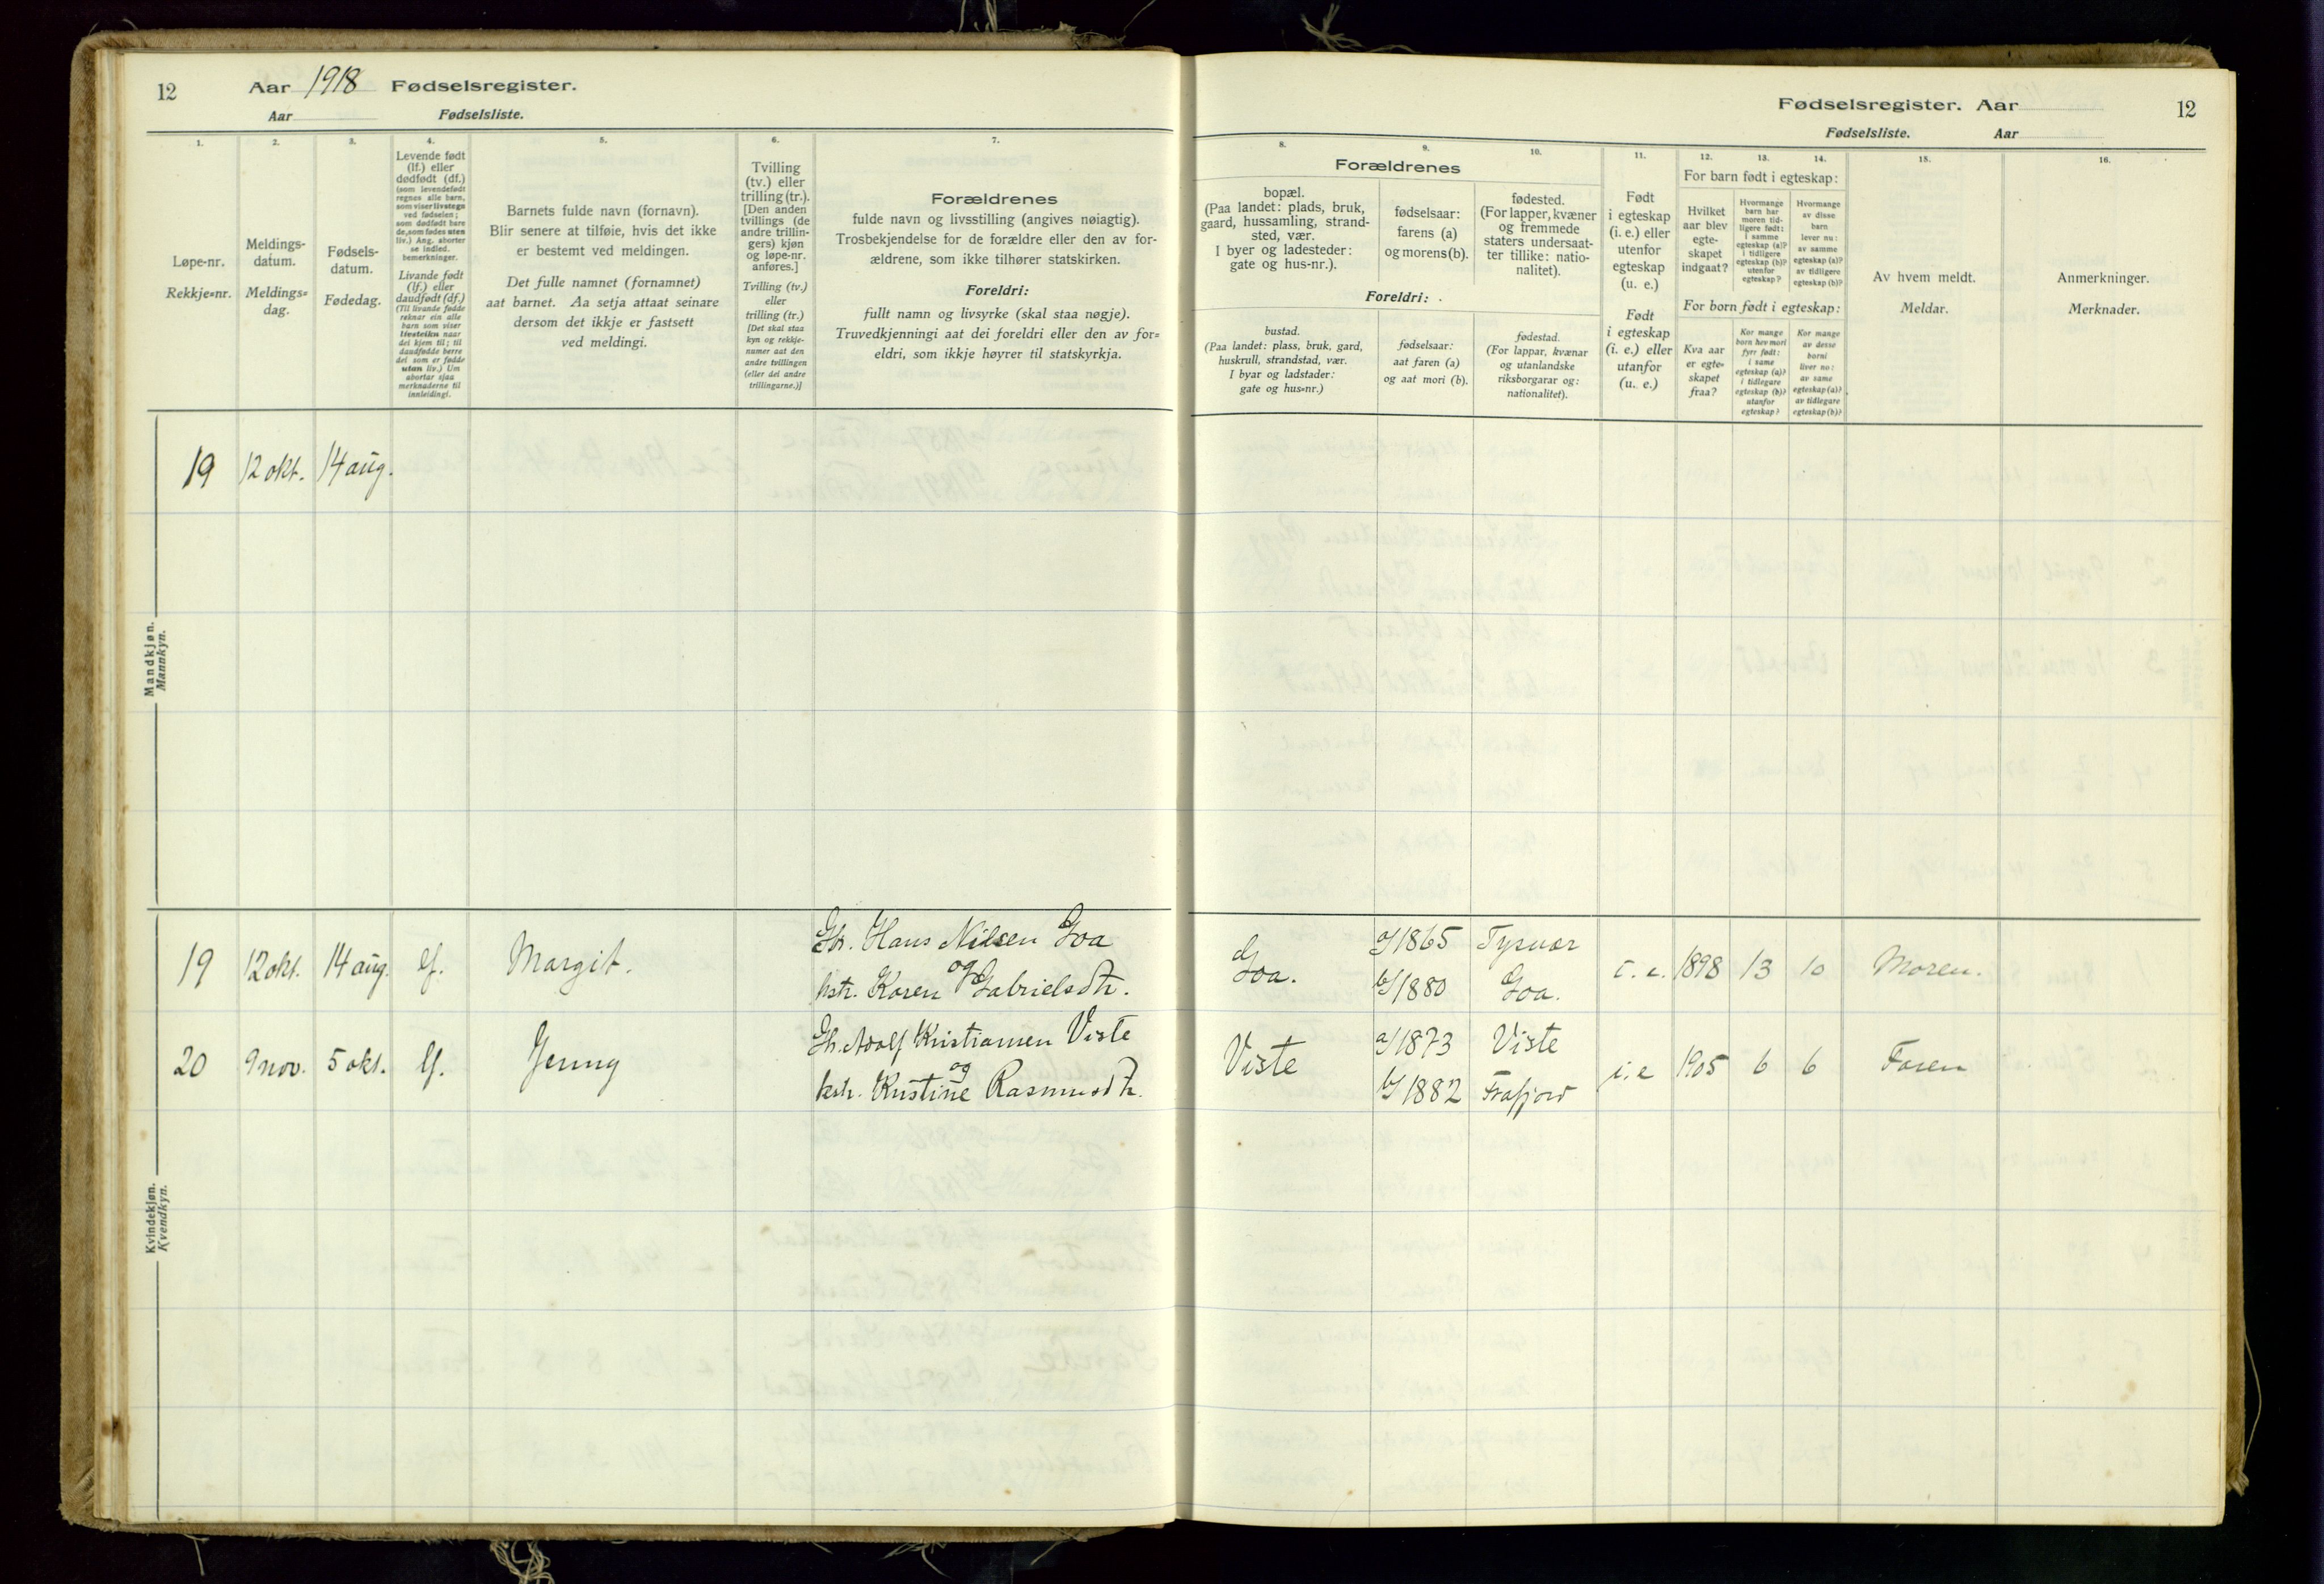 12
Aar 1918 Fødselsregister.
Aar Fødselsliste.
1.
2.
3.
4.
5.
6.
7.
Løpe-nr.
Rekkje=nr.
Meldings-
datum.
Meldings=
dag.
Fødsels-
datum.
Fødedag.
Levende født
(lf.) eller
dødfødt (df.)
(som levendefødt
regnes alle barn,
som viser livstegn
ved fødselen;
som dødfødt bare
de, som fødes uten
liv.) Ang. aborter
se indled.
bemerkninger.
Livande født
(lf.) eller
daudfødt (df.)
(Til livande fødde
reknar ein alle
barn som viser
livsteikn naar
dei kjem til; til
daudfødde berre
dei som er fødde
utan liv.) Um
abortar sjaa
merknaderne til
innleidingi.
Barnets fulde navn (fornavn).
Blir senere at tilføie, hvis det ikke
er bestemt ved meldingen.
Det fulle namnet (fornamnet)
aat barnet. Aa setja attaat seinare
dersom det ikkje er fastsett
ved meldingi.
Tvilling
(tv.) eller
trilling (tr.).
[Den anden
tvillings (de
andre trillin-
gers) kjøn
og løpe-nr.
anføres.]
Tvilling (tv.)
eller
trilling (tr.)
[Det skal staa
kyn og rekkje-
numer aat den
andre tvillingen
(eller dei andre
trillingarne.)]
Forældrenes
fulde navn og livsstilling (angives nøiagtig).
Trosbekjendelse for de forældre eller den av for-
ældrene, som ikke tilhører statskirken.
Foreldri:
fullt namn og livsyrke (skal staa nøgje).
Truvedkjenningi aat dei foreldri eller den av for=
eldri, som ikkje høyrer til statskyrkja.
Mandkjøn.
Mannkyn.
19 12 okt. 14 aug.
Kvindekjøn.
Kvendkyn.
19 12 okt. 14 aug. lf. Margit.
Gbr. Hans Nilsen Goa
og
hstr. Karen Gabrielsdtr.
20 9 nov. 5 okt. lf. Jenny
Gbr. Adolf Kristiansen Viste
og
hstr. Kristine Rasmusdtr.
Fødselsregister. Aar
12
Fødselsliste. Aar
8.
9.
10.
11.
12.
13.
14.
15.
16.
Forældrenes
bopæl.
(Paa landet: plads, bruk,
gaard, hussamling, strand-
sted, vær.
I byer og ladesteder:
gate og hus-nr.).
fødselsaar:
farens (a)
og morens (b).
fødested.
(For lapper, kvæner
og fremmede
staters undersaat-
ter tillike: natio-
nalitet).
Foreldri:
bustad.
(Paa landet: plass, bruk, gard,
huskrull, strandstad, vær.
I byar og ladstader:
gate og hus=nr.)
fødselsaar:
aat faren (a)
og aat mori (b).
fødestad.
(For lappar, kvænar
og utanlandske
riksborgarar og:
nationalitet).
Født
i egteskap
(i. e.) eller
utenfor
egteskap
(u. e.)
Født
i egteskap
(i. e.) eller
utanfor
egteskap
(u. e.)
For barn født i egteskap:
Hvilket
aar blev
egte-
skapet
indgaat?
Hvormange
barn har
moren tid-
ligere født:
i samme
egteskap (a)?
i tidligere
egteskap (b)?
utenfor
egteskap?
Hvormange
av disse
barn
lever nu:
av samme
egteskap (a)?
av tidligere
egteskap (b)?
For born født i egteskap:
Kva aar
er egte=
skapet
fraa?
Kor mange
born hev mori
fyrr født:
i same
egteskap (a)?
i tidlegare
egteskap (b)?
utanfor
egteskap?
Kor mange
av desse
borni
liver no:
av same
egteskap (a)?
av tidlegare
egteskap (b)?
Av hvem meldt.
Meldar.
Anmerkninger.
Merknader.
Goa.
a/1865 Tysvær
b/1880 Goa.
i. e. 1898 13 10 Moren.
Viste
a/1873 Viste
b/1882 Frafjord
i. e 1905 6 6 Faren